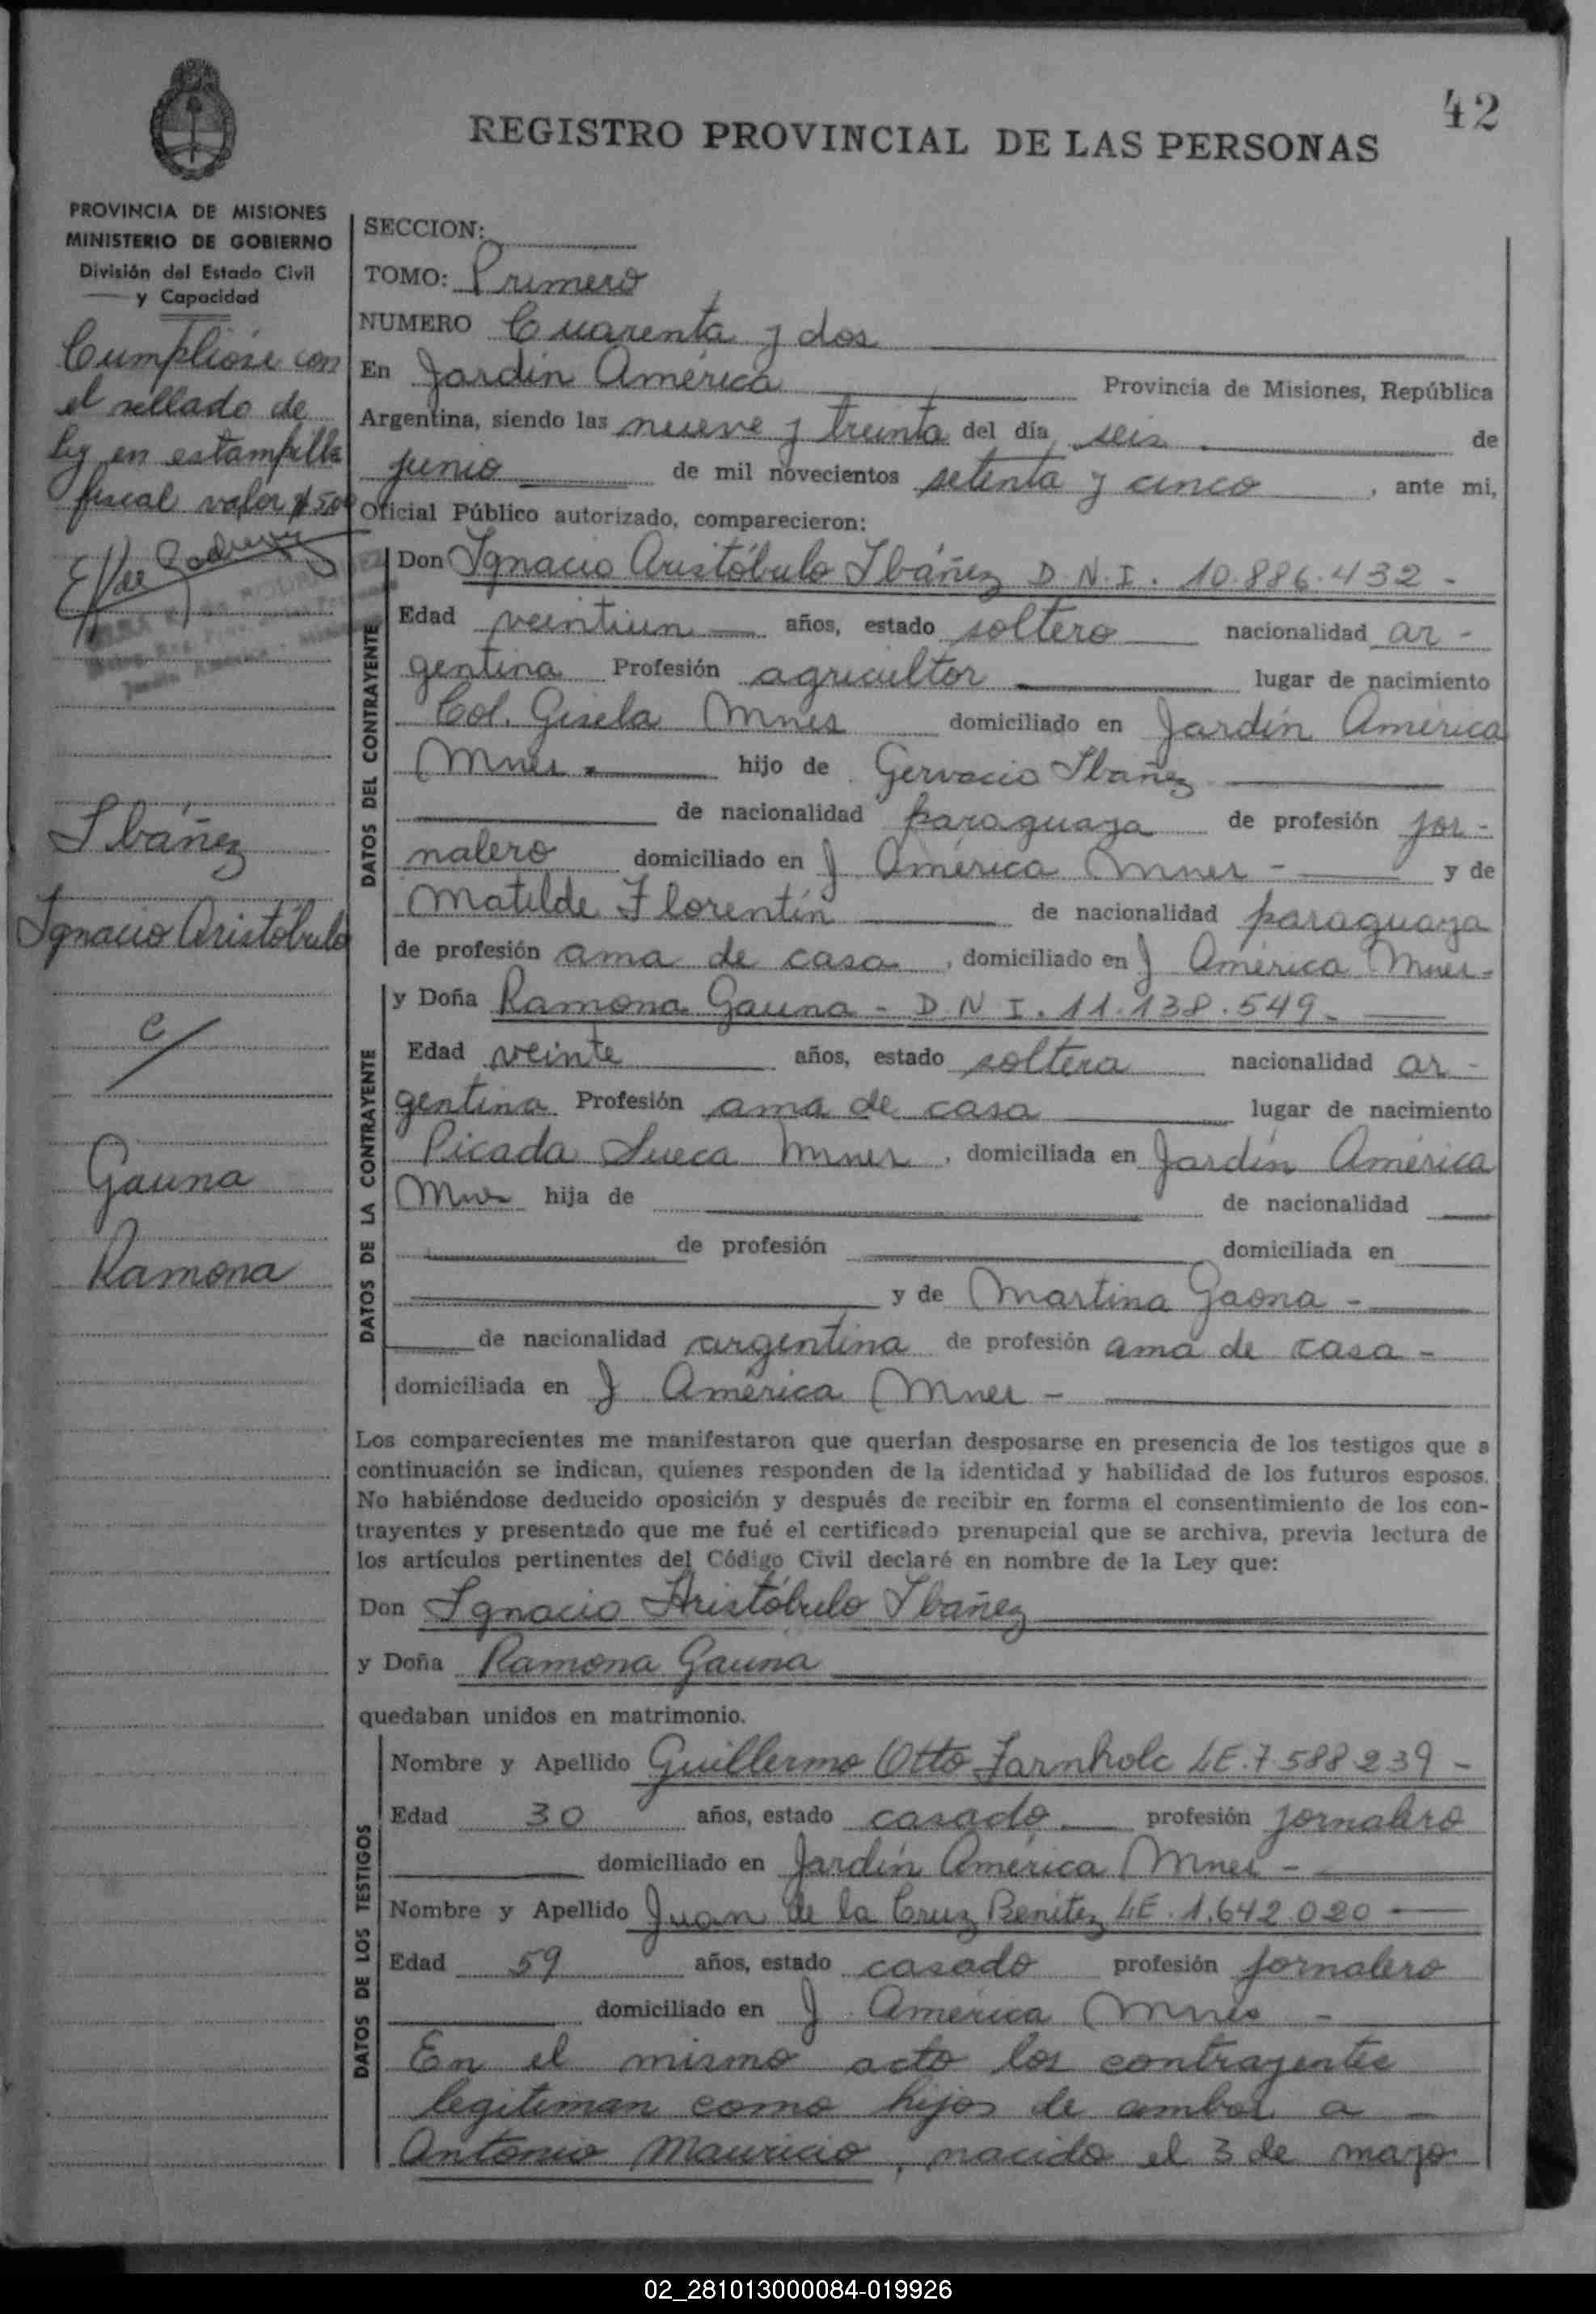 42
REGISTRO PROVINCIAL DE LAS PERSONAS
PROVINCIA DE MISIONES
MINISTERIO DE GOBIERNO
División del Estado Civil
y Capacidad
Cumplióse con
el sellado de
ley en estampilla
fiscal valor $ 50
Ibáñez
Ignacio Aristóbulo
c/
Gauna
Ramona
SECCION:
TOMO: Primero
NUMERO Cuarenta y dos
En Jardín América Provincia de Misiones, República
Argentina, siendo las nueve y treinta del día seis de
junio de mil novecientos setenta y cinco, ante mi,
Oficial Público autorizado, comparecieron:
DATOS DEL CONTRAYENTE
Don Ignacio Aristóbulo Ibáñez D.N.I. 10.886.432 -
Edad veintiun años, estado soltero nacionalidad ar-
gentina Profesión agricultor lugar de nacimiento
Col. Gisela Mnes domiciliado en Jardín América
Mnes. hijo de Gervacio Ibañez
de nacionalidad paraguaya de profesión jor-
nalero domiciliado en J. América Mnes - y de
Matilde Florentín de nacionalidad paraguaya
de profesión ama de casa, domiciliado en J América Mnes-
DATOS DE LA CONTRAYENTE
y Doña Ramona Gauna - D.N.I. 11.138.549-
Edad veinte años, estado soltera nacionalidad ar-
gentina Profesión ama de casa lugar de nacimiento
Picada Sueca Mnes, domiciliada en Jardín América
Mnes hija de de nacionalidad
de profesión domiciliada en
y de Martina Gaona -
de nacionalidad argentina de profesión ama de casa -
domiciliada en J América Mnes -
Los comparecientes me manifestaron que querían desposarse en presencia de los testigos que a
continuación se indican, quienes responden de la identidad y habilidad de los futuros esposos.
No habiéndose deducido oposición y después de recibir en forma el consentimiento de los con-
trayentes y presentado que me fué el certificado prenupcial que se archiva, previa lectura de
los artículos pertinentes del Código Civil declaré en nombre de la Ley que:
Don Ignacio Aristóbulo Ibañez
y Doña Ramona Gauna
quedaban unidos en matrimonio.
DATOS DE LOS TESTIGOS
Nombre y Apellido Guillermo Otto Farnholc LE.7588239 -
Edad 30 años, estado casado profesión jornalero
domiciliado en Jardín América Mnes -
Nombre y Apellido Juan de la Cruz Benitez LE. 1.642.020
Edad 59 años, estado casado profesión jornalero
domiciliado en J. América Mnes -
En el mismo acto los contrayentes
legitiman como hijos de ambos a -
Antonio Mauricio, nacido el 3 de mayo
02_281013000084-019926